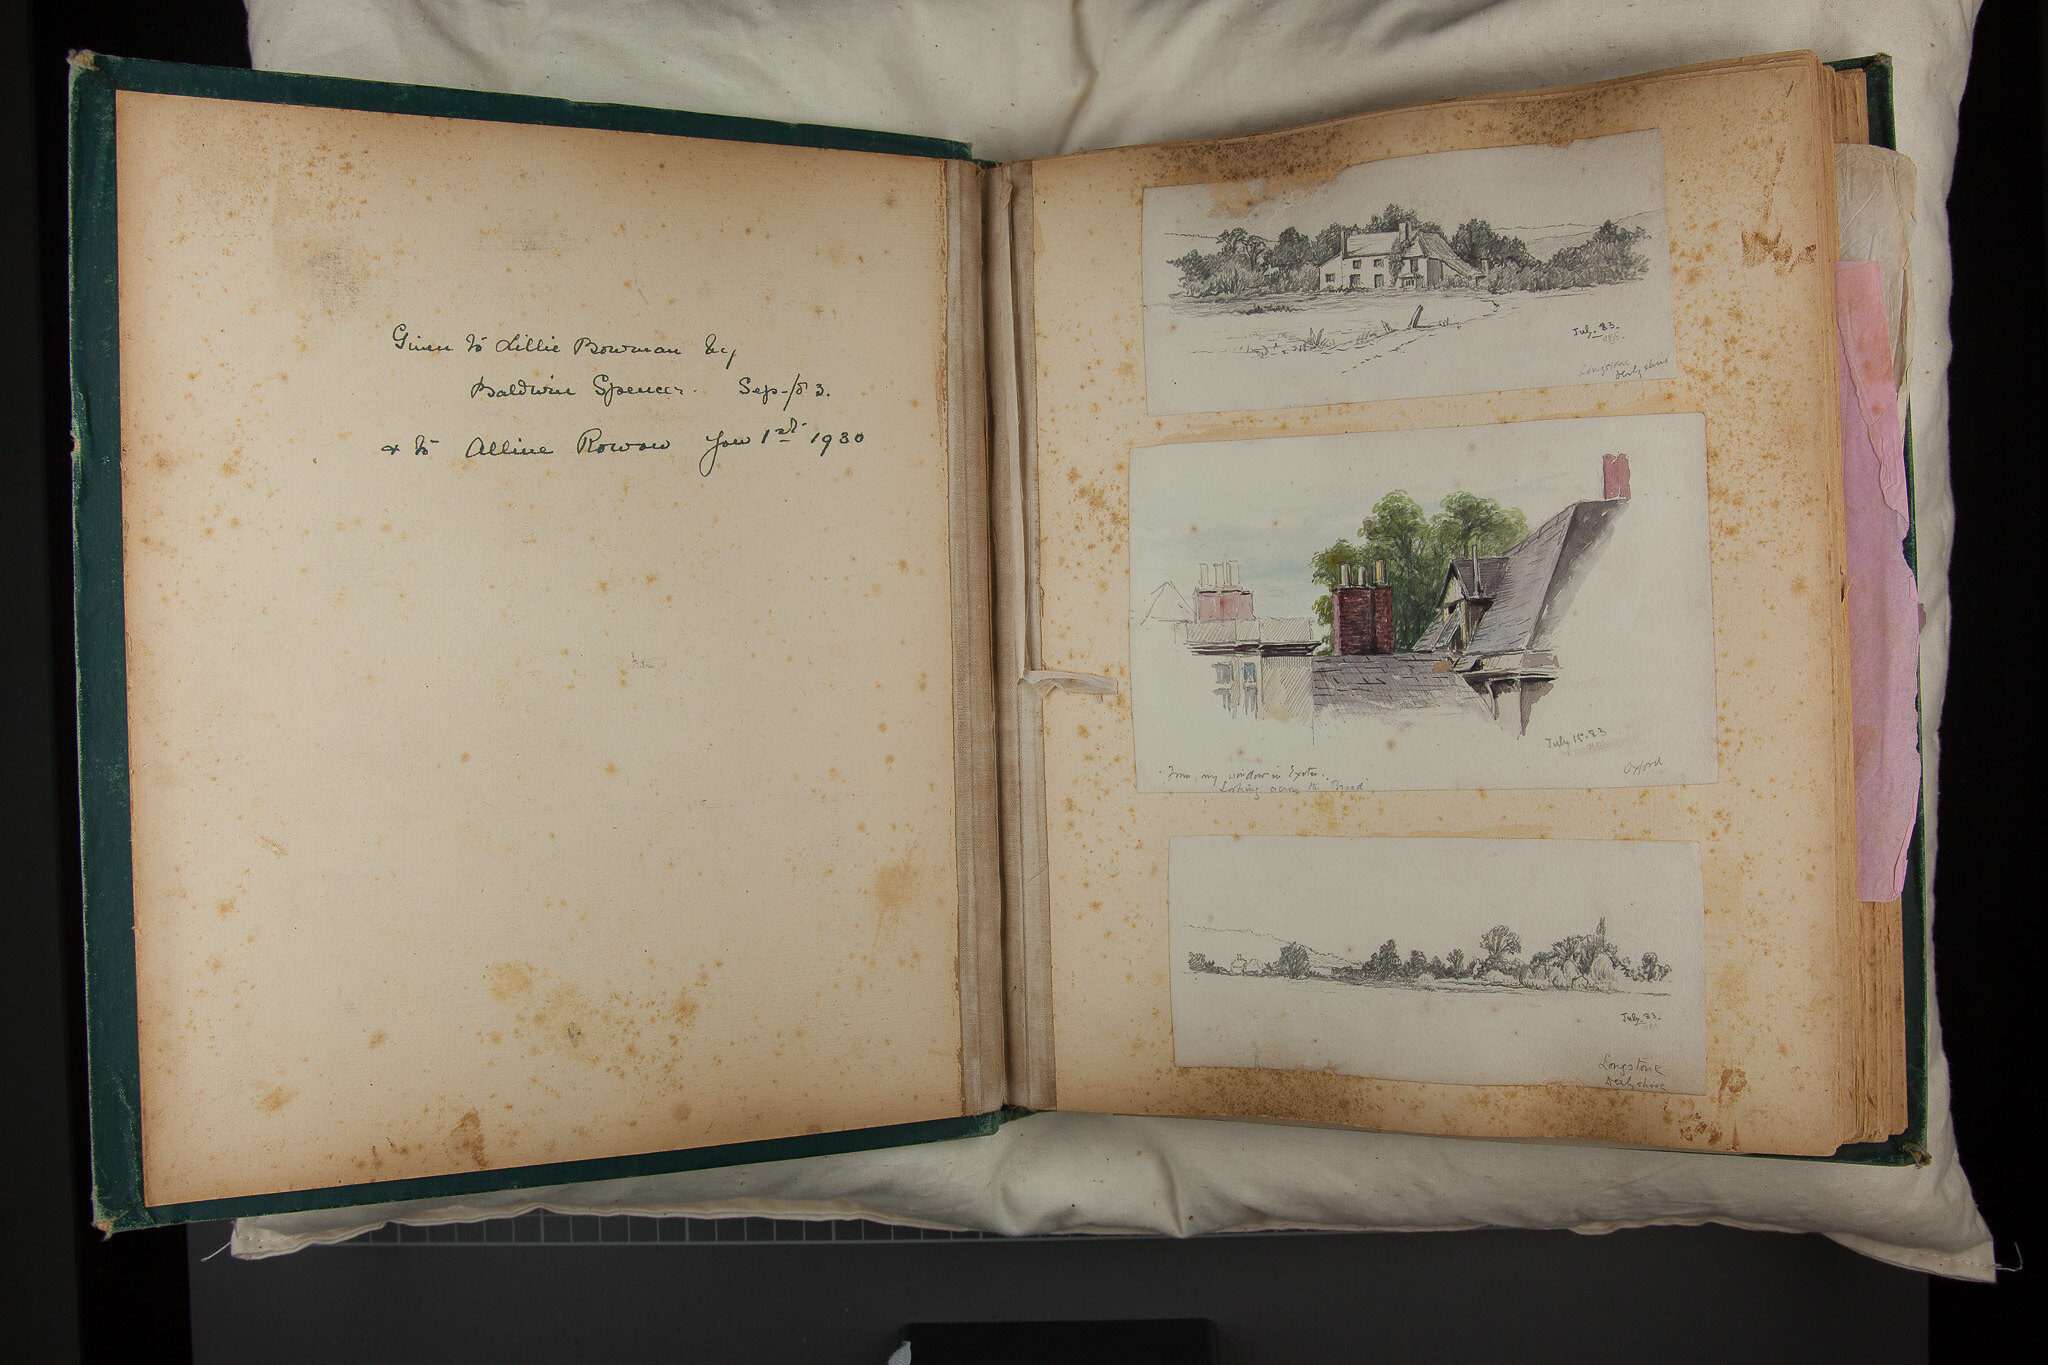 Given to Lillie Bowman by
Baldwin Spencer. Sep-/83.
& to Alline Rowan Jan 1st 1930
1
July. 83.
Longstone
Derbyshire
July 15. 83
Oxford
From my window in Exeter.
Looking across the Broad.
July. 83.
Longstone
Derbyshire